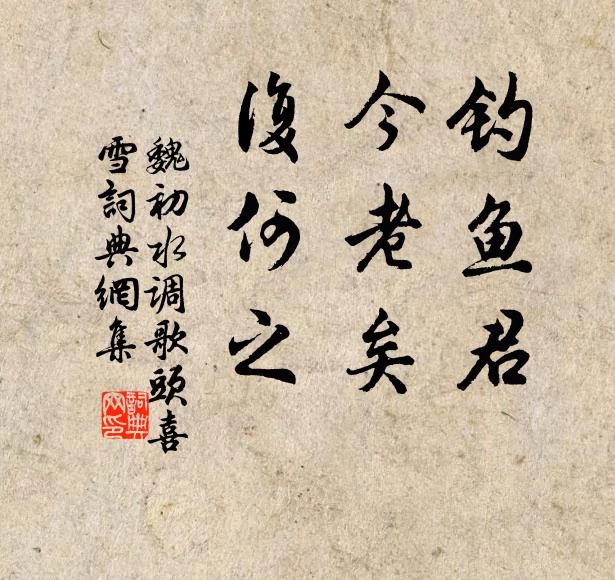 钓鱼君
今老矣
復何之
魏初水调歌頭喜
雪詞典網集
詞典
网印